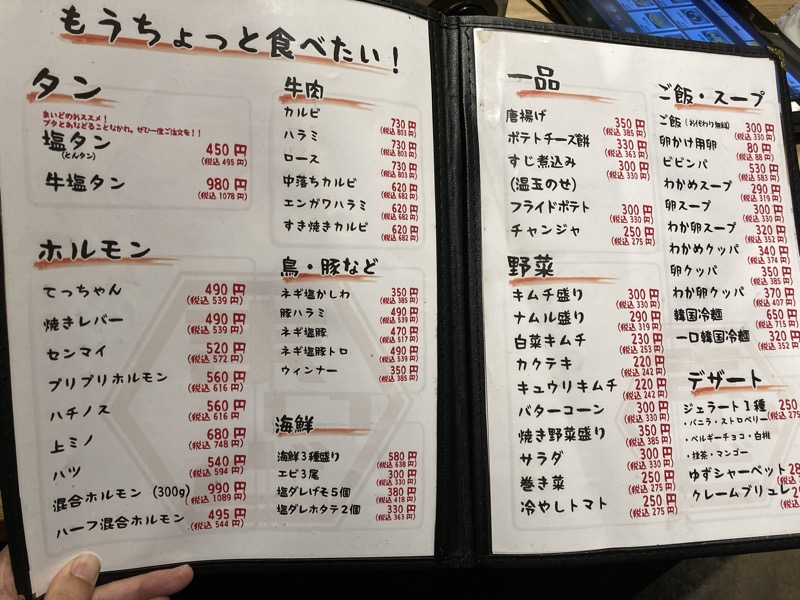 もうちょっと食べたい！
タン
まいどのおススメ！
ブタとあなどることなかれ。ぜひ一度ご注文を！！
塩タン 450円
(とんタン) (税込 495円)
牛塩タン 980円
(税込 1078円)
ホルモン
てっちゃん 490円
(税込 539円)
焼きレバー 490円
(税込 539円)
センマイ 520円
(税込 572円)
プリプリホルモン 560円
(税込 616円)
ハチノス 560円
(税込 616円)
上ミノ 680円
(税込 748円)
ハツ 540円
(税込 594円)
混合ホルモン (300g) 990円
(税込 1089円)
ハーフ混合ホルモン 495円
(税込 544円)
牛肉
カルビ 730円
(税込 803円)
ハラミ 730円
(税込 803円)
ロース 730円
(税込 803円)
中落ちカルビ 620円
(税込 682円)
エンガワハラミ 620円
(税込 682円)
すき焼きカルビ 620円
(税込 682円)
鳥・豚など
ネギ塩かしわ 350円
(税込 385円)
豚ハラミ 490円
(税込 539円)
ネギ塩豚 470円
(税込 517円)
ネギ塩豚トロ 490円
(税込 539円)
ウィンナー 350円
(税込 385円)
海鮮
海鮮3種盛り 580円
(税込 638円)
エビ3尾 300円
(税込 330円)
塩ダレげそ5個 380円
(税込 418円)
塩ダレホタテ2個 330円
(税込 363円)
一品
唐揚げ 350円
(税込 385円)
ポテトチーズ餅 330円
(税込 363円)
すじ煮込み 300円
(税込 330円)
(温玉のせ)
フライドポテト 300円
(税込 330円)
チャンジャ 250円
(税込 275円)
野菜
キムチ盛り 300円
(税込 330円)
ナムル盛り 290円
(税込 319円)
白菜キムチ 230円
(税込 253円)
カクテキ 220円
(税込 242円)
キュウリキムチ 220円
(税込 242円)
バターコーン 300円
(税込 330円)
焼き野菜盛り 350円
(税込 385円)
サラダ 300円
(税込 330円)
巻き菜 250円
(税込 275円)
冷やしトマト 250円
(税込 275円)
ご飯・スープ
ご飯 (お代わり無料) 300円
(税込 330円)
卵かけ用卵 80円
(税込 88円)
ビビンパ 530円
(税込 583円)
わかめスープ 290円
(税込 319円)
卵スープ 300円
(税込 330円)
わか卵スープ 320円
(税込 352円)
わかめクッパ 340円
(税込 374円)
卵クッパ 350円
(税込 385円)
わか卵クッパ 370円
(税込 407円)
韓国冷麺 650円
(税込 715円)
一口韓国冷麺 320円
(税込 352円)
デザート
ジェラート1種 250
・バニラ・ストロベリー (税込 275
・ベルギーチョコ・白桃
・抹茶・マンゴー
ゆずシャーベット 28
クレームブリュレ